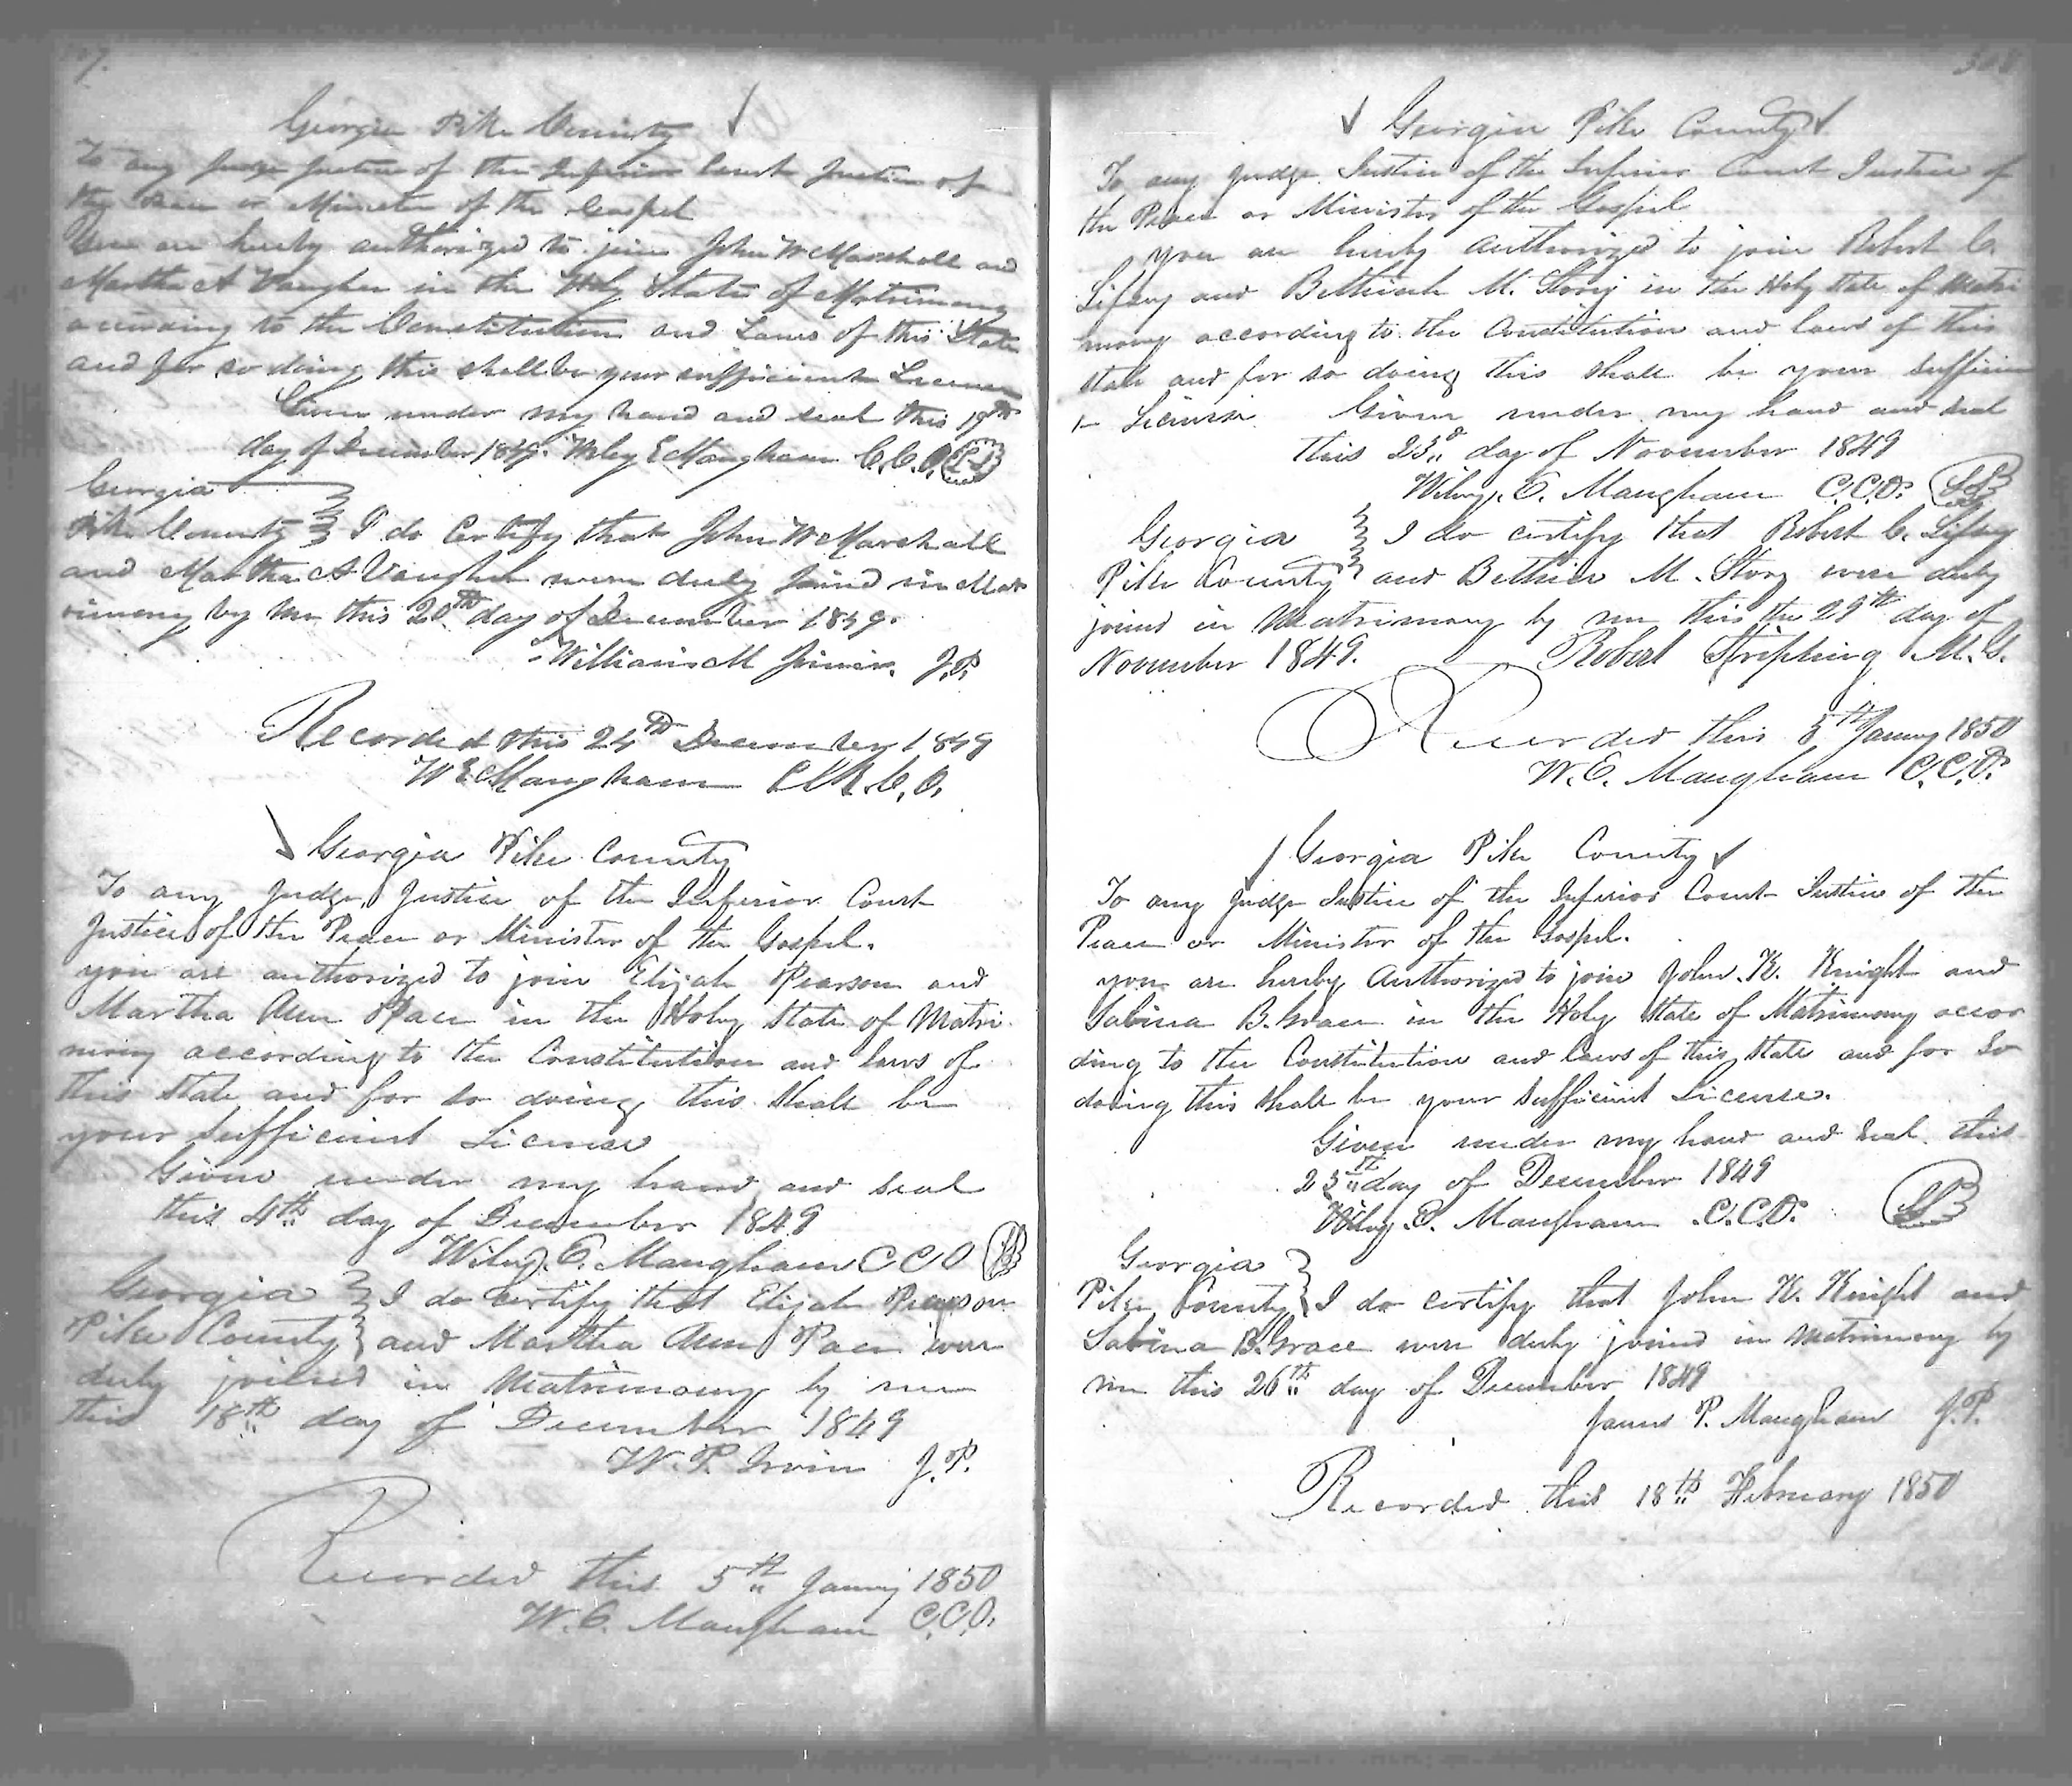 7.
Georgia Pike County
To any Judge Justice of the Inferior Court Justice of
the Peace or Minister of the Gospel
You are hereby authorized to join John W Marshall and
Martha A Vaughn in the Holy State of Matrimony
according to the Constitution and Laws of this State
and for so doing this shall be your sufficient License
Given under my hand and seal this 19th
day of December 1849. Wiley E Mangham C.C.O. LS
Georgia
Pike County I do Certify that John W Marshall
and Martha A Vaughn were duly joind in Mat
rimony by me this 20th day of December 1849.
William M J.P.
Recorded this 24th December 1849
W E Mangham C.C.O.
Georgia Pike County
To any Judge, Justice of the Inferior Court
Justice of the Peace or Minister of the Gospel.
you are authorized to join Elijah Pearson and
Martha Ann Pace in the Holy State of Matri
mony according to the Constitution and laws of
this State and for so doing this shall be
your sufficient License
Given under my hand and seal
this 4th day of December 1849
Wiley. E. Mangham C C O LS
Georgia I do certify that Elijah Pearson
Pike County and Martha Ann Pace were
duly joined in Matrimony by me
this 18th day of December 1849
W. P. Irvin J.P.
Recorded this 5th Januy 1850
W. E. Mangham C.C.O.
Georgia Pike County
To any Judge Justice of the Inferior Court Justice of
the Peace or Minister of the Gospel
you are hereby authorized to join Robert C.
Lifsey and Bethiah M. Story in the Holy State of Matri
mony according to the Constitution and laws of this
State and for so doing this shall be your sufficien
t- License Given under my hand and seal
this 23d day of November 1849
Wiley. E. Mangham C.C.O. LS
Georgia I do certify that Robert C. Lifsey
Pike County and Bethiah M. Story were duly
joined in Matrimony by me this the 29th day of
November 1849. Robert Stripling M.G.
Recorded this 5th Januy 1850
W. E. Mangham C.C.O.
Georgia Pike County
To any Judge Justice of the Inferior Court Justice of the
Peace or Minister of the Gospel.
you are hereby Authorized to join John K. Knight and
Sabina B. Grace in the Holy State of Matrimony accor
ding to the Constitution and laws of this State and for so
doing this shall be your sufficient License.
Given under my hand and seal this
25th day of December 1849
Wiley E. Mangham C.C.O. LS
Georgia
Pike County I do certify that John K. Knight and
Sabina B. Grace were duly joined in Matrimony by
me this 26th day of December 1849
James P. Mangham J.P.
Recorded this 18th February 1850